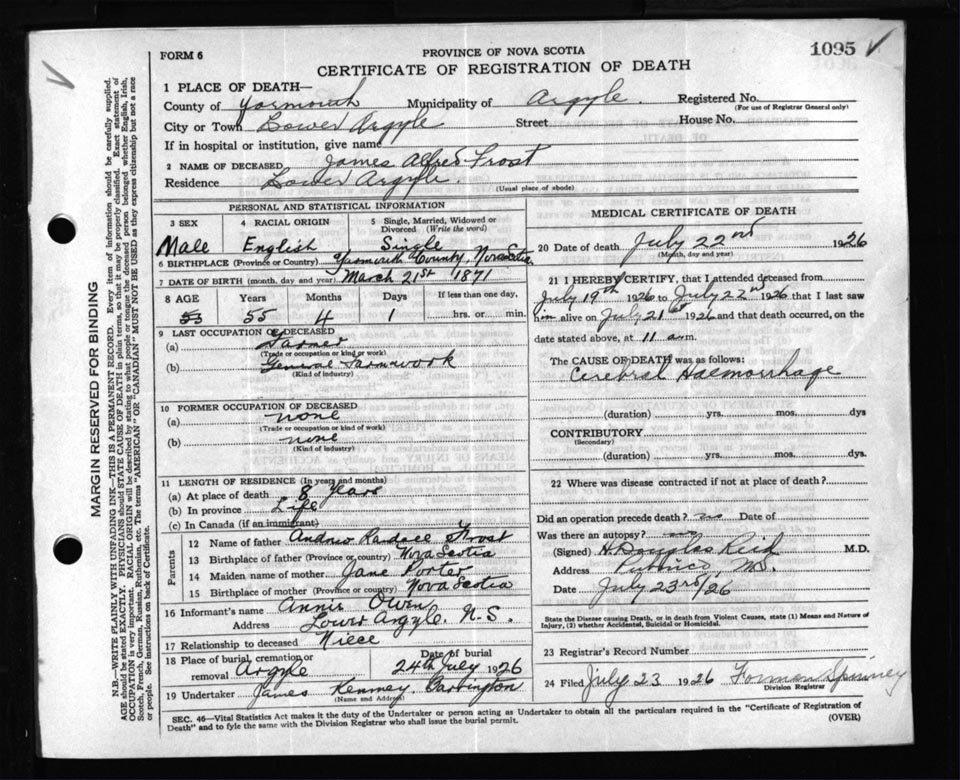 1095 ✓
FORM 6
PROVINCE OF NOVA SCOTIA
CERTIFICATE OF REGISTRATION OF DEATH
1 PLACE OF DEATH—
County of Yarmouth Municipality of Argyle. Registered No.
(For use of Registrar General only)
City or Town Lower Argyle Street House No.
If in hospital or institution, give name
2 NAME OF DECEASED James Alfred Frost
Residence Lower Argyle.
(Usual place of abode)
PERSONAL AND STATISTICAL INFORMATION
3 SEX 4 RACIAL ORIGIN 5 Single, Married, Widowed or Divorced (Write the word)
Male English Single
6 BIRTHPLACE (Province or Country) Yarmouth County, Nova Scotia
7 DATE OF BIRTH (month, day and year) March 21st 1871
8 AGE Years Months Days If less than one day,
55 4 1 hrs. or min.
9 LAST OCCUPATION OF DECEASED
(a) Farmer
(Trade or occupation or kind of work)
(b) General Farmwork
(Kind of industry)
10 FORMER OCCUPATION OF DECEASED
(a) none
(Trade or occupation or kind of work)
(b) none
(Kind of industry)
11 LENGTH OF RESIDENCE (In years and months)
(a) At place of death 8 years
(b) In province Life
(c) In Canada (if an immigrant)
Parents
12 Name of father Andrew Randall Frost
13 Birthplace of father (Province or country) Nova Scotia
14 Maiden name of mother Jane Porter
15 Birthplace of mother (Province or country) Nova Scotia
16 Informant's name Annie Owen
Address Lower Argyle. N.S.
17 Relationship to deceased Niece
18 Place of burial, cremation or removal Argyle Date of burial 24th July 1926
19 Undertaker James Kenney, Barrington
(Name and Address)
MEDICAL CERTIFICATE OF DEATH
20 Date of death July 22nd 1926
(Month, day and year)
21 I HEREBY CERTIFY, that I attended deceased from
July 19th 1926 to July 22nd 1926 that I last saw
him alive on July 21st 1926 and that death occurred, on the
date stated above, at 11 a.m.
The CAUSE OF DEATH was as follows:
Cerebral Haemorrhage
(duration) yrs. mos. dys
CONTRIBUTORY
(Secondary)
(duration) yrs. mos. dys.
22 Where was disease contracted if not at place of death?
Did an operation precede death? no Date of
Was there an autopsy? no
(Signed) H. Douglas Reid M.D.
Address Pubnico, N.S.
Date July 23rd/26
State the Disease causing Death, or in death from Violent Causes, state (1) Means and Nature of
Injury, (2) whether Accidental, Suicidal or Homicidal.
23 Registrar's Record Number
24 Filed July 23 1926 Forman Spinney
Division Registrar
SEC. 46—Vital Statistics Act makes it the duty of the Undertaker or person acting as Undertaker to obtain all the particulars required in the "Certificate of Registration of
Death" and to fyle the same with the Division Registrar who shall issue the burial permit.
(OVER)
MARGIN RESERVED FOR BINDING
N.B.—WRITE PLAINLY WITH UNFADING INK—THIS IS A PERMANENT RECORD. Every item of information should be carefully supplied.
AGE should be stated EXACTLY. PHYSICIANS should STATE CAUSE OF DEATH in plain terms, so that it may be properly classified. Exact statement of
OCCUPATION is very important. RACIAL ORIGIN will be described by stating to what people or tongue the deceased person belonged whether English, Irish,
Scotch, French, German, Russian, Ruthenian, etc. The terms "AMERICAN" OR "CANADIAN" MUST NOT BE USED as they express citizenship but not a race
or people. See instructions on back of Certificate.